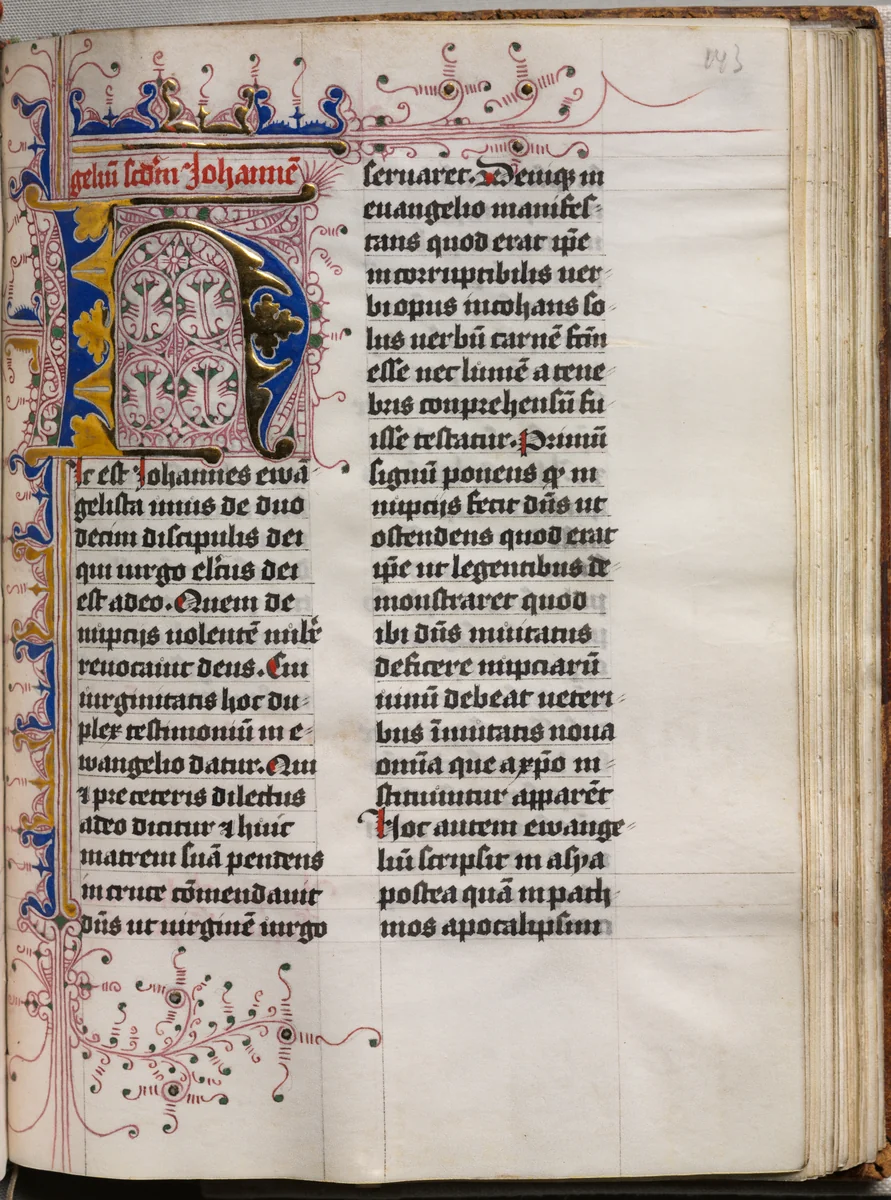 143
geliū scd'm Johannē
Hic est Johannes ewā-
gelista unus de duo
decim discipulis dei
qui uirgo elc̄tus dei
est adeo. Quem de
nupcijs uolentē nub'e
reuocauit deus. Cui
uirginitatis hoc du-
plex testimoniū in e-
wangelio datur. Qui
⁊ pre ceteris dilectus
adeo dicitur ⁊ huic
matrem suā pendens
in cruce cōmendauit
dn̄s ut uirginē uirgo
seruaret. Deniqꝫ in
euangelio manifes-
tans quod erat ip̄e
incorruptibilis uer-
bi opus incohans so-
lus uerbū carnē fc̄m
esse nec lumē a tene
bris conprehensū fu
isse testatur. Primū
signū ponens qꝫ in
nupcijs fecit dn̄s ut
ostendens quod erat
ip̄e ut legentibus de-
monstraret quod
ibi dn̄s inuitatus
deficere nupciarū
uinū debeat ueteri-
bus īmutatis noua
omīa que a xp̄o in-
stituuntur apparēt
Hoc autem ewange-
liū scripsit in asya
postea quā in path-
mos apocalipsim